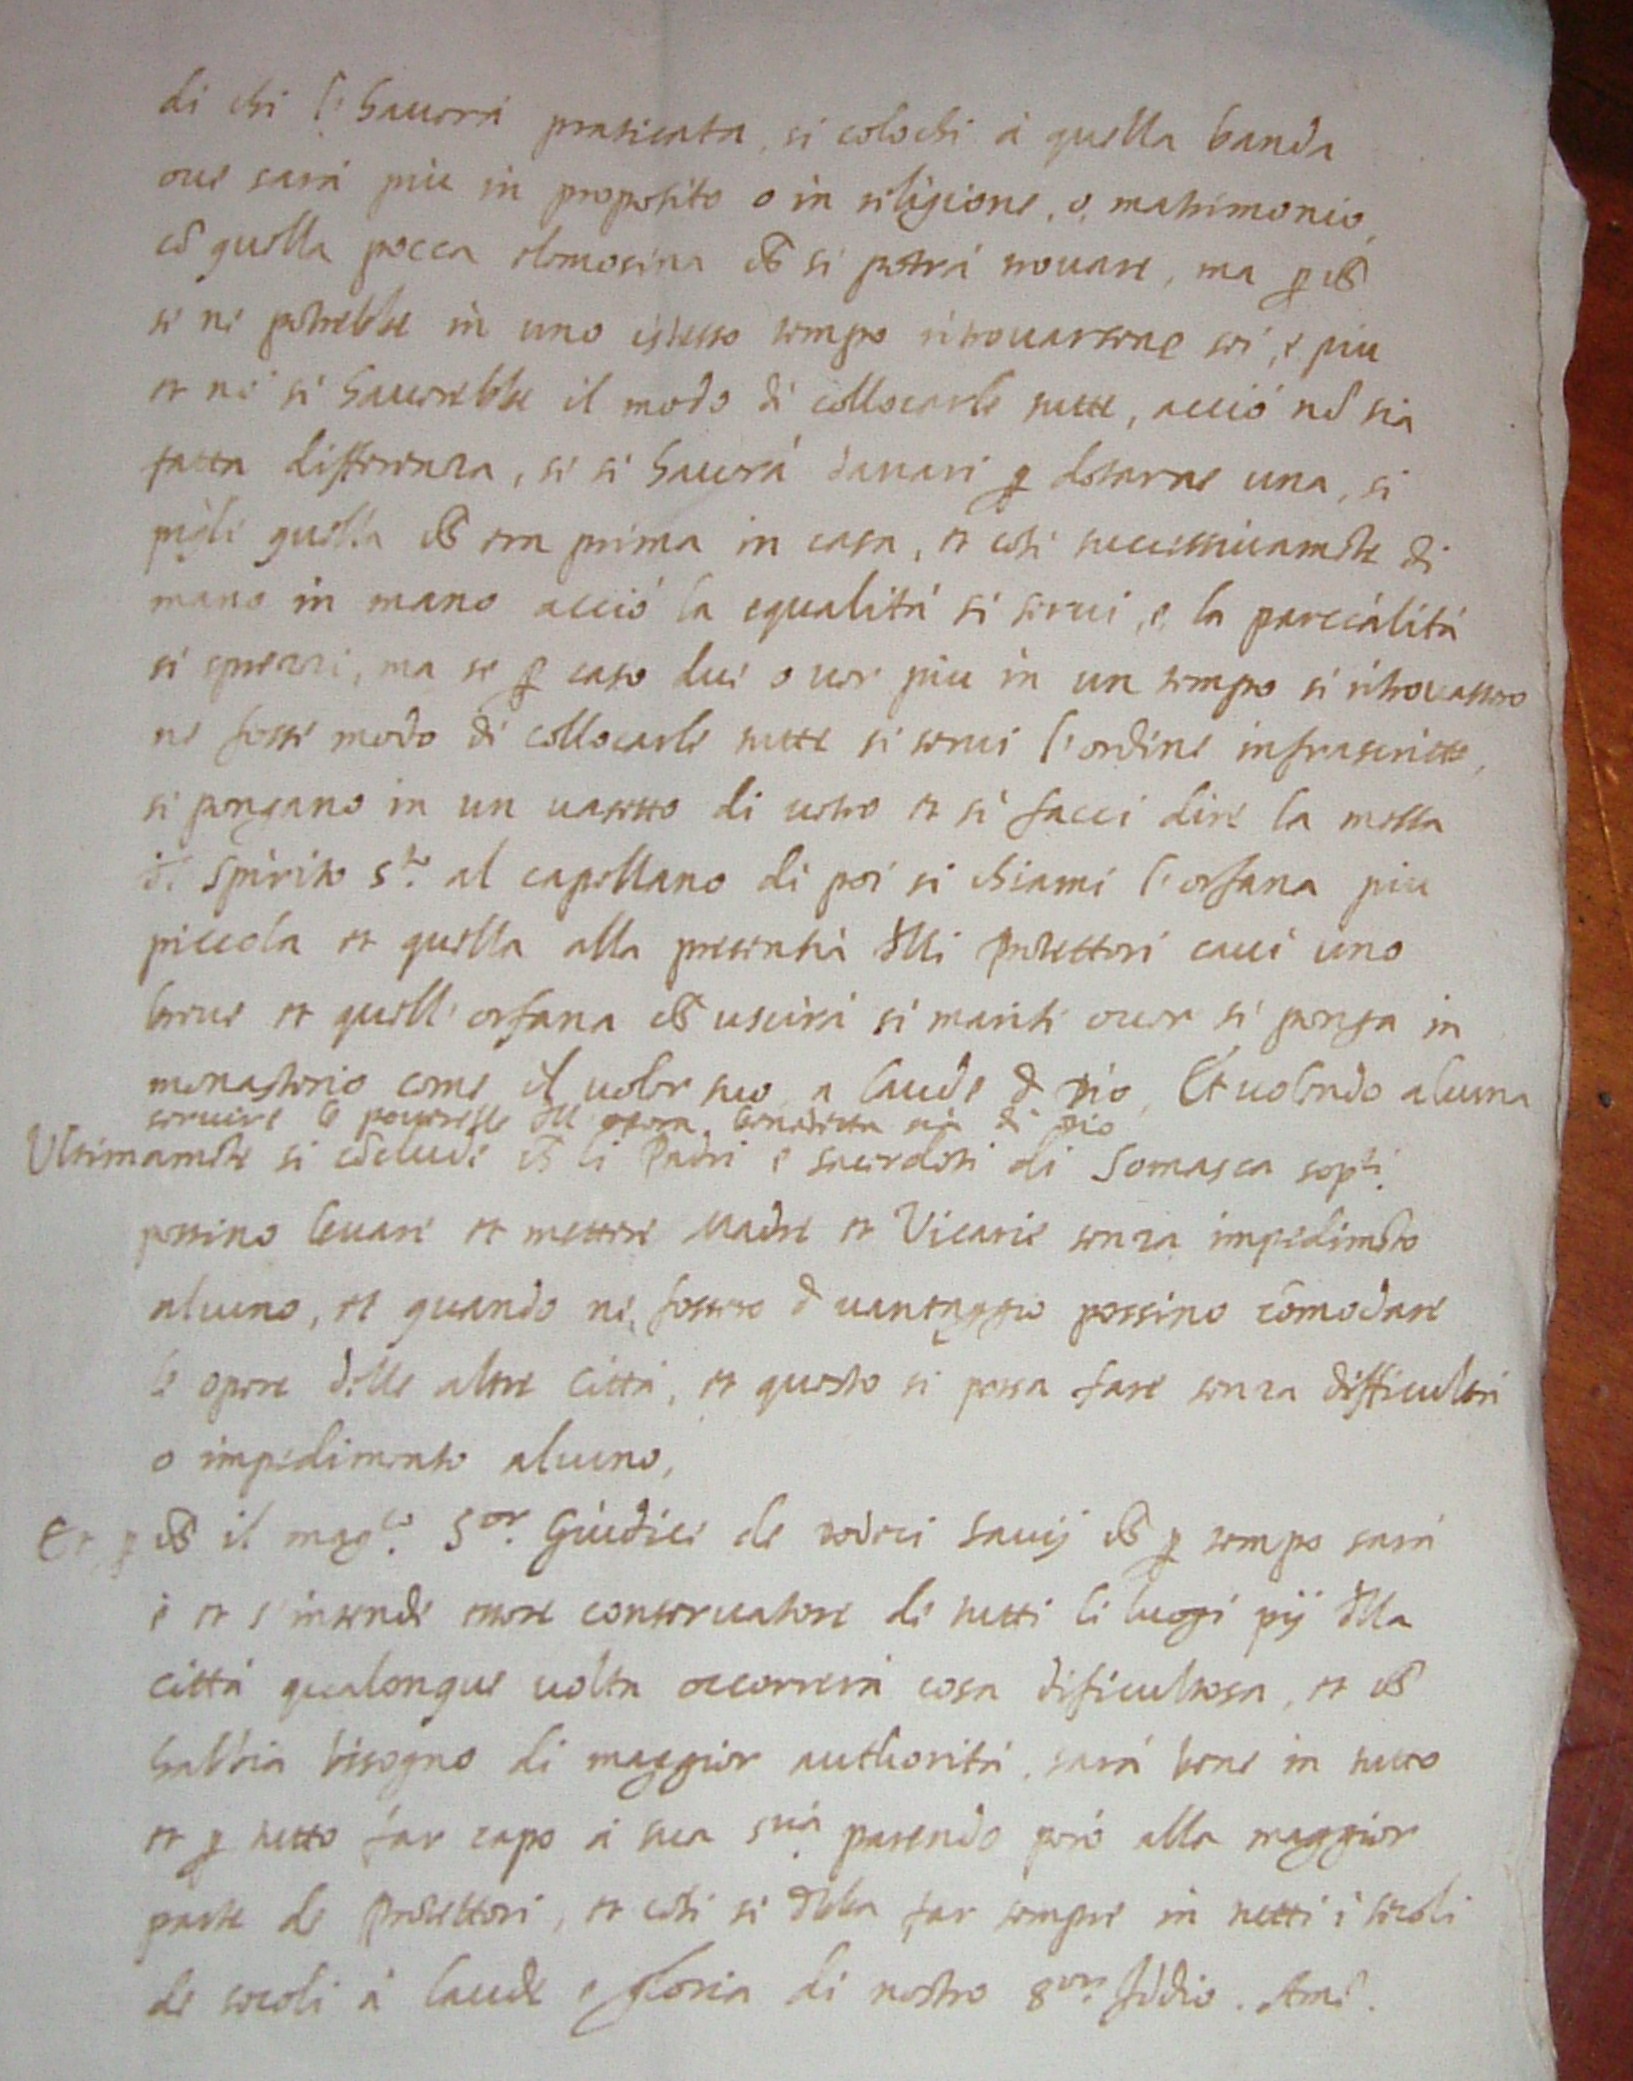 di chi l'haverà praticata, si colochi à quella banda
ove sarà più in proposito o in religione, o, matrimonio,
cō quella pocca elemosina ch̄ si potrà trovare, ma ꝑ ch̄
se ne potrebbe in uno istesso tempo ritrovarsene sei, e più
et nō si haverebbe il modo di collocarle tutte, acciò nō sia
fatta differenza, se si haverà danari ꝑ dotarne una, si
pigli quella ch̄ era prima in casa, et così successivamēte di
mano in mano acciò la equalità si servi, e, la parcialità
si sprezzi, ma se ꝑ caso due o ver più in un tempo si ritrovassero
ne fosse modo di collocarle tutte si servi l'ordine infrascritto,
si pongano in un vasetto di vetro et si facci dire la messa
d. Spirito S.to al capellano di poi si chiami l'orfana più
piccola et quella alla presentia d̄lli Protettori cavi uno
breve et quell'orfana ch̄ uscirà si mariti over si ponga in
monasterio come il voler suo a laude d Dio, Et volēdo alcuna
servire le poverelle dll' opera, benedetta sia di Dio
Ultimamēte si cōclude ch̄ li Padri e sacerdoti di Somasca sop.ti
possino levare et mettere Madre et Vicarie senza impedimēto
alcuno, et quando ne, fossero d vantaggio possino cōmodare
le opere delle altre Città, et questo si possa fare senza difficultà
o impedimento alcuno,
Et ꝑ ch̄ il mag.co S.or Giudice de dodeci savij ch̄ ꝑ tempo sarà
è et s'intende essere conservatore de tutti li luogi pij d̄lla
città qualonque volta occorrerà cosa dificultosa, et ch̄
habbia bisogno di maggior authorità, sarà bene in tutto
et ꝑ tutto far capo à sua S.ria parendo però alla maggior
parte de Protettori, et così si debba far sempre in tutti i secoli
de secoli à laude e gloria di nostro S.or Iddio. Amē.